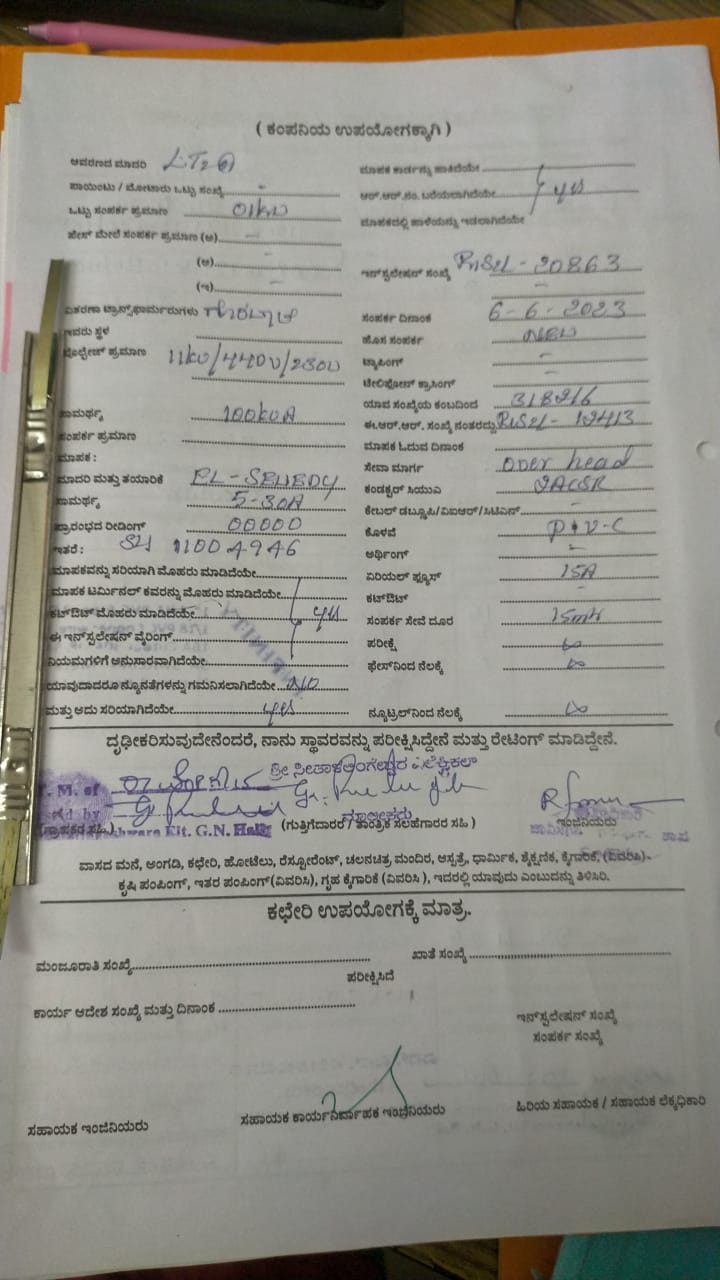 ( ಕಂಪನಿಯ ಉಪಯೋಗಕ್ಕಾಗಿ )
ಆವರಣದ ಮಾದರಿ LT2
ಪಾಯಿಂಟು / ಮೋಟಾರು ಒಟ್ಟು ಸಂಖ್ಯೆ -
ಒಟ್ಟು ಸಂಪರ್ಕ ಪ್ರಮಾಣ 01KW
ಫೇಸ್ ಮೇಲೆ ಸಂಪರ್ಕ ಪ್ರಮಾಣ (ಅ) -
(ಆ) -
(ಇ) -
ವಿತರಣಾ ಟ್ರಾನ್ಸ್‌ಫಾರ್ಮರುಗಳು
ಇವರು ಸ್ಥಳ
ವೋಲ್ಟೇಜ್ ಪ್ರಮಾಣ 11KV/440V/230V
ಸಾಮರ್ಥ್ಯ 100KVA
ಸಂಪರ್ಕ ಪ್ರಮಾಣ
ಮಾಪಕ :
ಮಾದರಿ ಮತ್ತು ತಯಾರಿಕೆ
ಸಾಮರ್ಥ್ಯ 5-30A
ಪ್ರಾರಂಭದ ರೀಡಿಂಗ್ 00000
ಇತರೆ : 11004946
ಮಾಪಕವನ್ನು ಸರಿಯಾಗಿ ಮೊಹರು ಮಾಡಿದೆಯೇ
ಮಾಪಕ ಟರ್ಮಿನಲ್ ಕವರನ್ನು ಮೊಹರು ಮಾಡಿದೆಯೇ
ಕಟ್‌ಔಟ್ ಮೊಹರು ಮಾಡಿದೆಯೇ yes
ಈ ಇನ್‌ಸ್ಟಲೇಷನ್ ವೈರಿಂಗ್
ನಿಯಮಗಳಿಗೆ ಅನುಸಾರವಾಗಿದೆಯೇ
ಯಾವುದಾದರೂ ನ್ಯೂನತೆಗಳನ್ನು ಗಮನಿಸಲಾಗಿದೆಯೇ NO
ಮತ್ತು ಅದು ಸರಿಯಾಗಿದೆಯೇ yes
ಮಾಪಕ ಕಾರ್ಡನ್ನು ಹಾಕಿದೆಯೇ
ಆರ್.ಆರ್.ನಂ. ಬರೆಯಲಾಗಿದೆಯೇ yes
ಮಾಪಕದಲ್ಲಿ ಹಾಳೆಯನ್ನು ಇಡಲಾಗಿದೆಯೇ
ಇನ್‌ಸ್ಟಲೇಷನ್ ಸಂಖ್ಯೆ 20863
ಸಂಪರ್ಕ ದಿನಾಂಕ 6-6-2023
ಹೊಸ ಸಂಪರ್ಕ NEW
ಟ್ಯಾಪಿಂಗ್ -
ಟೆಲಿಫೋನ್ ಕ್ರಾಸಿಂಗ್ -
ಯಾವ ಸಂಖ್ಯೆಯ ಕಂಬದಿಂದ
ಈ.ಆರ್.ಆರ್. ಸಂಖ್ಯೆ ನಂತರದ್ದು
ಮಾಪಕ ಓದುವ ದಿನಾಂಕ
ಸೇವಾ ಮಾರ್ಗ over head
ಕಂಡಕ್ಟರ್ ಸಿಯುಎ
ಕೇಬಲ್ ಡಬ್ಲೂಪಿ/ವಿಐಆರ್/ಸಿಟಿಎಸ್ -
ಕೊಳವೆ P.V.C
ಅರ್ಥಿಂಗ್ -
ಏರಿಯಲ್ ಫ್ಯೂಸ್ 15A
ಕಟ್‌ಔಟ್ -
ಸಂಪರ್ಕ ಸೇವೆ ದೂರ
ಪರೀಕ್ಷೆ ∞
ಫೇಸ್‌ನಿಂದ ನೆಲಕ್ಕೆ ∞
ನ್ಯೂಟ್ರಲ್‌ನಿಂದ ನೆಲಕ್ಕೆ ∞
ದೃಢೀಕರಿಸುವುದೇನೆಂದರೆ, ನಾನು ಸ್ಥಾವರವನ್ನು ಪರೀಕ್ಷಿಸಿದ್ದೇನೆ ಮತ್ತು ರೇಟಿಂಗ್ ಮಾಡಿದ್ದೇನೆ.
ಮಾಲೀಕರು
(ಗ್ರಾಹಕರ ಸಹಿ) (ಗುತ್ತಿಗೆದಾರರ / ತಾಂತ್ರಿಕ ಸಲಹೆಗಾರರ ಸಹಿ ) ಇಂಜಿನಿಯರು
ವಾಸದ ಮನೆ, ಅಂಗಡಿ, ಕಛೇರಿ, ಹೋಟೆಲು, ರೆಸ್ಟೋರೆಂಟ್, ಚಲನಚಿತ್ರ, ಮಂದಿರ, ಆಸ್ಪತ್ರೆ, ಧಾರ್ಮಿಕ, ಶೈಕ್ಷಣಿಕ, ಕೈಗಾರಿಕೆ, (ವಿವರಿಸಿ)-
ಕೃಷಿ ಪಂಪಿಂಗ್, ಇತರ ಪಂಪಿಂಗ್(ವಿವರಿಸಿ), ಗೃಹ ಕೈಗಾರಿಕೆ (ವಿವರಿಸಿ ), ಇದರಲ್ಲಿ ಯಾವುದು ಎಂಬುದನ್ನು ತಿಳಿಸಿರಿ.
ಕಛೇರಿ ಉಪಯೋಗಕ್ಕೆ ಮಾತ್ರ.
ಮಂಜೂರಾತಿ ಸಂಖ್ಯೆ ಖಾತೆ ಸಂಖ್ಯೆ
ಪರೀಕ್ಷಿಸಿದೆ
ಕಾರ್ಯ ಆದೇಶ ಸಂಖ್ಯೆ ಮತ್ತು ದಿನಾಂಕ
ಇನ್‌ಸ್ಟಲೇಷನ್ ಸಂಖ್ಯೆ
ಸಂಪರ್ಕ ಸಂಖ್ಯೆ
ಸಹಾಯಕ ಇಂಜಿನಿಯರು ಸಹಾಯಕ ಕಾರ್ಯನಿರ್ವಾಹಕ ಇಂಜಿನಿಯರು ಹಿರಿಯ ಸಹಾಯಕ / ಸಹಾಯಕ ಲೆಕ್ಕಧಿಕಾರಿ